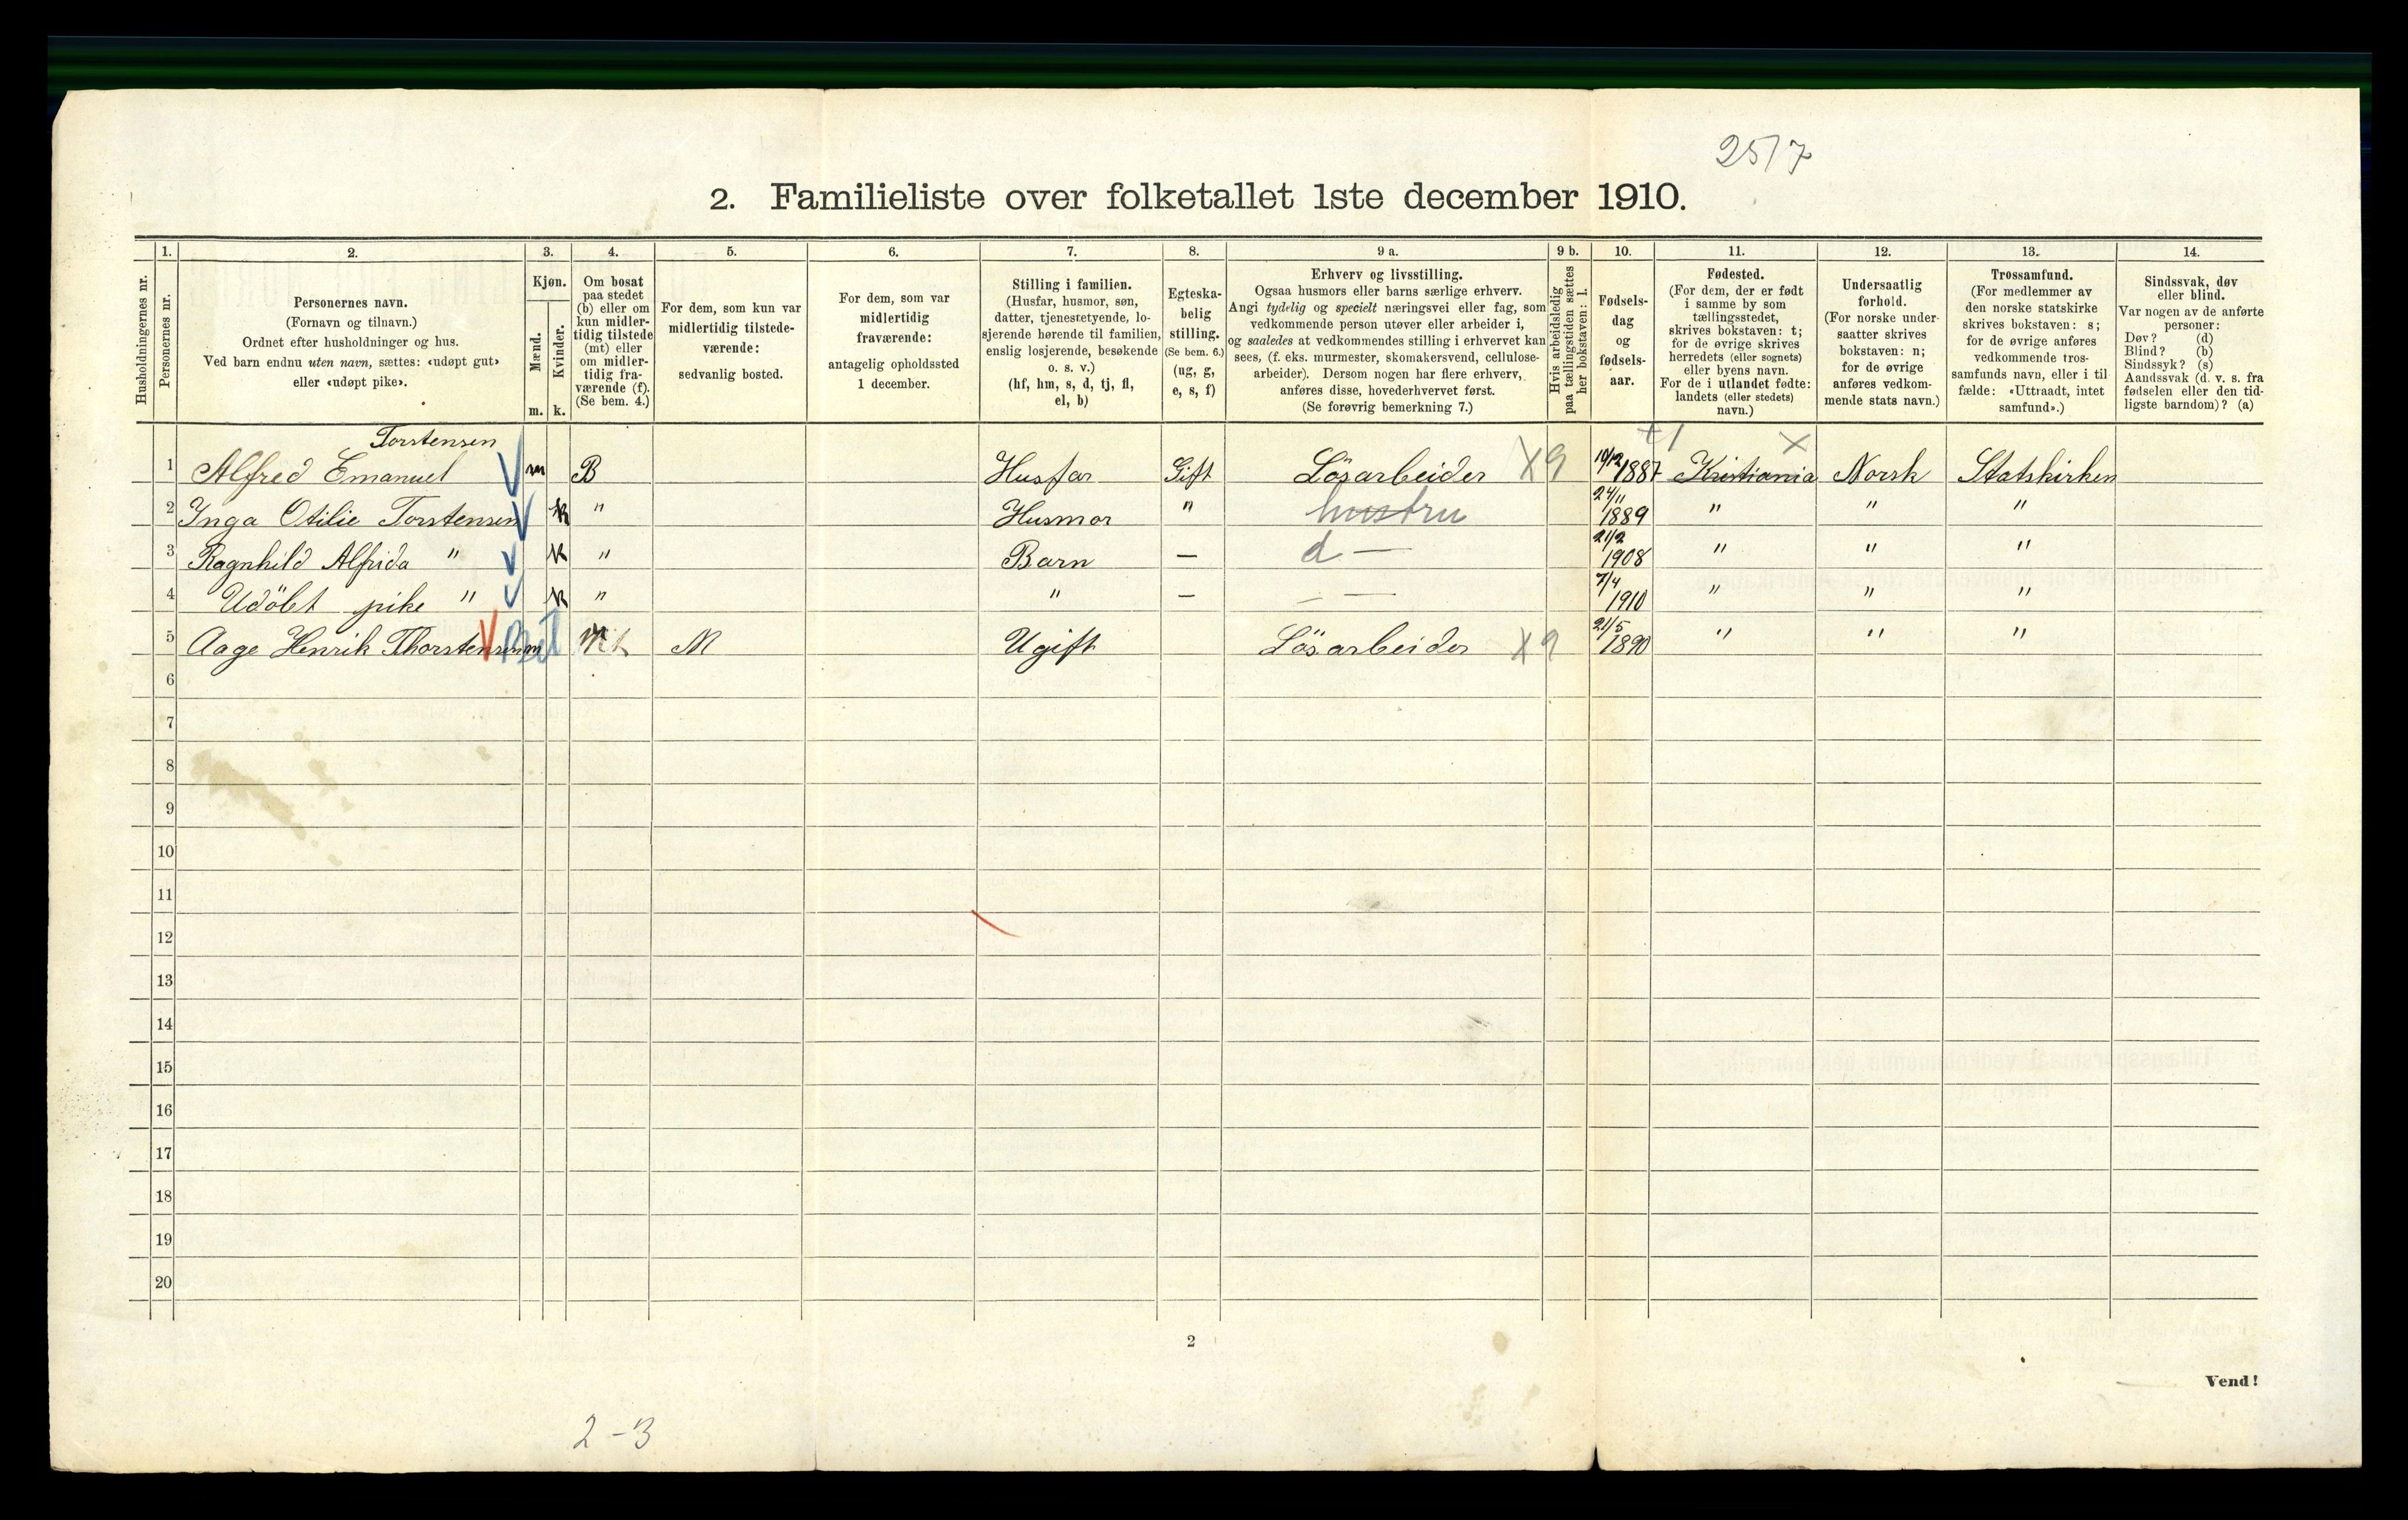 25/7
2. Familieliste over folketallet 1ste december 1910.
1. 2. 3. 4. 5. 6. 7. 8. 9 a. 9 b. 10. 11. 12. 13. 14.
Husholdningernes nr.
Personernes nr.
Personernes navn.
(Fornavn og tilnavn.)
Ordnet efter husholdninger og hus.
Ved barn endnu uten navn, sættes: «udøpt gut»
eller «udøpt pike».
Kjøn.
Mænd.
Kvinder.
m. k.
Om bosat
paa stedet
(b) eller om
kun midler-
tidig tilstede
(mt) eller
om midler-
tidig fra-
værende (f).
(Se bem. 4.)
For dem, som kun var
midlertidig tilstede-
værende:
sedvanlig bosted.
For dem, som var
midlertidig
fraværende:
antagelig opholdssted
1 december.
Stilling i familien.
(Husfar, husmor, søn,
datter, tjenestetyende, lo-
sjerende hørende til familien,
enslig losjerende, besøkende
o. s. v.)
(hf, hm, s, d, tj, fl,
el, b)
Egteska-
belig
stilling.
(Se bem. 6.)
(ug, g,
e, s, f)
Erhverv og livsstilling.
Ogsaa husmors eller barns særlige erhverv.
Angi tydelig og specielt næringsvei eller fag, som
vedkommende person utøver eller arbeider i,
og saaledes at vedkommendes stilling i erhvervet kan
sees, (f. eks. murmester, skomakersvend, cellulose-
arbeider). Dersom nogen har flere erhverv,
anføres disse, hovederhvervet først.
(Se forøvrig bemerkning 7.)
Hvis arbeidsledig
paa tællingstiden sættes
her bokstaven: l.
Fødsels-
dag
og
fødsels-
aar.
Fødested.
(For dem, der er født
i samme by som
tællingsstedet,
skrives bokstaven: t;
for de øvrige skrives
herredets (eller sognets)
eller byens navn.
For de i utlandet fødte:
landets (eller stedets)
navn.)
Undersaatlig
forhold.
(For norske under-
saatter skrives
bokstaven: n;
for de øvrige
anføres vedkom-
mende stats navn.)
Trossamfund.
(For medlemmer av
den norske statskirke
skrives bokstaven: s;
for de øvrige anføres
vedkommende tros-
samfunds navn, eller i til-
fælde: «Uttraadt, intet
samfund».)
Sindssvak, døv
eller blind.
Var nogen av de anførte
personer:
Døv? (d)
Blind? (b)
Sindssyk? (s)
Aandssvak (d. v. s. fra
fødselen eller den tid-
ligste barndom)? (a)
Torstensen
1 Alfred Emanuel m B Husfar Gift Lösarbeider X9 10/12 1887 Kristiania Norsk Statskirken
2 Inga Otilie Torstensen k " Husmor " hustru 24/11 1889 " " "
3 Ragnhild Alfrida " k " Barn — d — 21/2 1908 " " "
4 Udöbt pike " k " " — — — 7/4 1910 " " "
5 Aage Henrik Thorstensen m M Ugift Lösarbeider X9 21/5 1890 " " "
6
7
8
9
10
11
12
13
14
15
16
17
18
19
20
2
Vend!
2-3